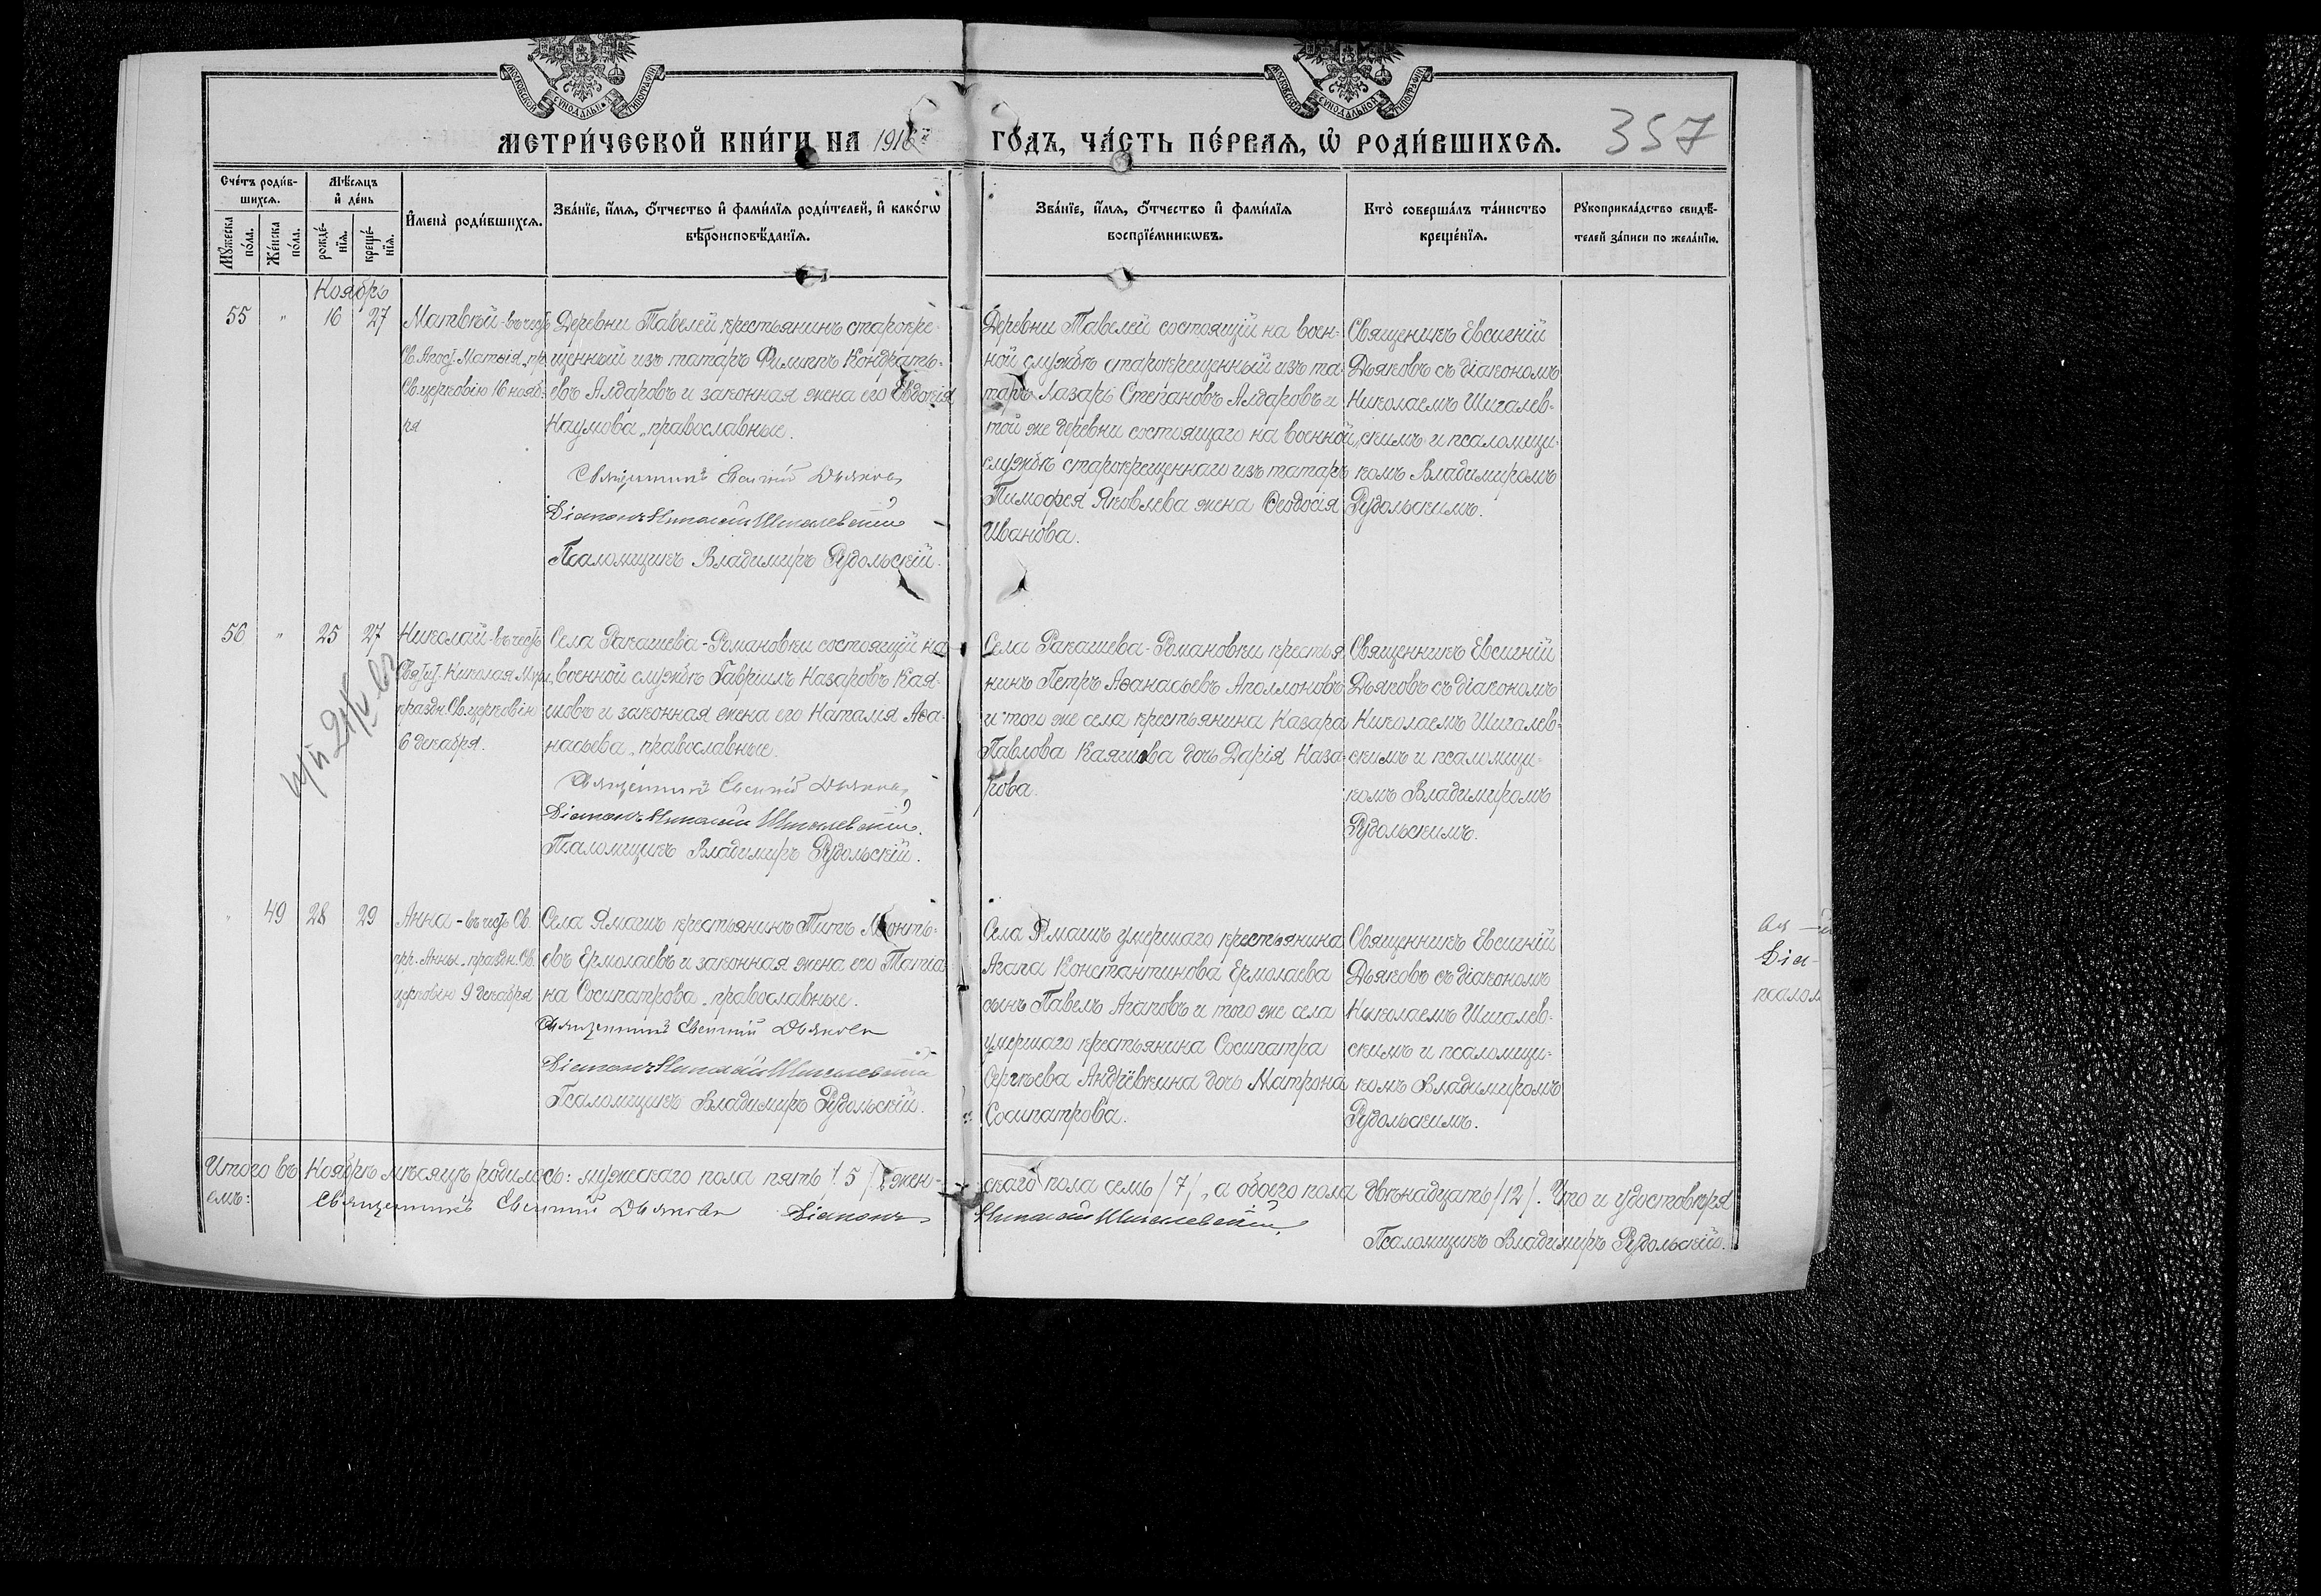 МОСКОВСКОЙ СѴНОДАЛЬНОЙ ТИПОГРАФІИ
МОСКОВСКОЙ СѴНОДАЛЬНОЙ ТИПОГРАФІИ
МЕТРИ́ЧЕСКОЙ КНИ́ГИ НА 1916й ГО́ДЪ, ЧА́СТЬ ПЕ́РВАЯ, Ѡ҆ РОДИ́ВШИХСЯ.
357
Сче́тъ роди́в-
шихся.
Мѣ́сяцъ
и҆ де́нь
Мꙋ́жеска
по́ла.
Же́нска
по́ла.
рожде́-
нїя.
креще́-
нїя.
И҆мена̀ роди́вшихся.
Зва́нїе, и҆́мя, о҆́тчество и҆ фами́лїя роди́телей, и҆ како́гѡ
вѣроисповѣ́данїя.
Зва́нїе, и҆́мя, о҆́тчество и҆ фами́лїя
воспрїе́мникѡвъ.
Кто̀ соверша́лъ та́инство
креще́нїя.
Рꙋкоприкла́дство свидѣ́-
телей за́писи по жела́нїю.
Ноябрь
55 " 16 27
Матвѣй - въ честь
Св. Апост. Матѳія, пр.
Св. церковію 16 нояб-
ря
Деревни Тавелей крестьянинъ старокре-
щенный изъ татаръ Филиппъ Кондрать-
евъ Алдаровъ и законная жена его Евдокія
Наумова, православные.
Священникъ Евсигній Дьяковъ
Діаконъ Николай Шигалевскій
Псаломщикъ Владимиръ Рудольскій.
Деревни Тавелей состоящій на воен-
ной службѣ старокрещенный изъ та-
таръ Лазарь Степановъ Алдаровъ и
той же деревни состоящаго на военной
службѣ старокрещеннаго изъ татаръ
Тимофея Яковлева жена Ѳеодосія
Иванова.
Священникъ Евсигній
Дьяковъ съ діакономъ
Николаемъ Шигалев-
скимъ и псаломщи-
комъ Владимиромъ
Рудольскимъ.
56 " 25 27
Николай - въ честь
Свят. Николая Мѵр.,
праздн. Св. церковію
6 декабря.
Села Ракашева-Романовки состоящій на
военной службѣ Гавріилъ Назаровъ Кая-
шовъ и законная жена его Наталія Аѳа-
насьева, православные.
Священникъ Евсигній Дьяковъ
Діаконъ Николай Шигалевскій.
Псаломщикъ Владимиръ Рудольскій.
Села Ракашева-Романовки крестья
нинъ Петръ Аѳанасьевъ Аполлоновъ
и того же села крестьянина Назара
Павлова Каяшова дочь Дарія Наза-
рова.
Священникъ Евсигній
Дьяковъ съ діакономъ
Николаемъ Шигалев-
скимъ и псаломщи-
комъ Владимиромъ
Рудольскимъ.
" 49 28 29
Анна - въ честь Св.
пр. Анны, праздн. Св.
церковію 9 декабря
Села Ямашъ крестьянинъ Титъ Леонть-
евъ Ермолаевъ и законная жена его Татіа
на Сосипатрова, православные.
Священникъ Евсигній Дьяковъ
Діаконъ Николай Шигалевскій
Псаломщикъ Владимиръ Рудольскій.
Села Ямашъ умершаго крестьянина
Агапа Константинова Ермолаева
сынъ Павелъ Агаповъ и того же села
умершаго крестьянина Сосипатра
Сергѣева Андрѣвкина дочь Матрона
Сосипатрова.
Священникъ Евсигній
Дьяковъ съ діакономъ
Николаемъ Шигалев-
скимъ и псаломщи-
комъ Владимиромъ
Рудольскимъ.
Діа-
псалом
Итого въ Ноябрѣ мѣсяцѣ родилось: мужескаго пола пять /5/, жен-
скаго пола семь /7/, а обоего пола двѣнадцать /12/. Что и удостовѣря
емъ: Священникъ Евсигній Дьяковъ Діаконъ Николай Шигалевскій.
Псаломщикъ Владимиръ Рудольскій.